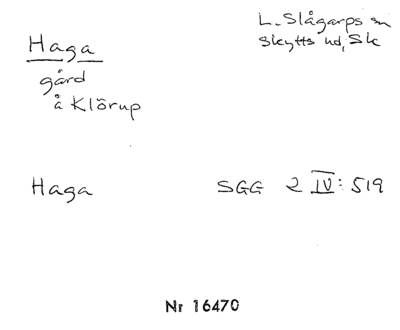 Haga
gård
å Klörup
L. Slågarps sn
Skytts hd, Sk
Haga SGG 2 IV: 519
Nr 16470